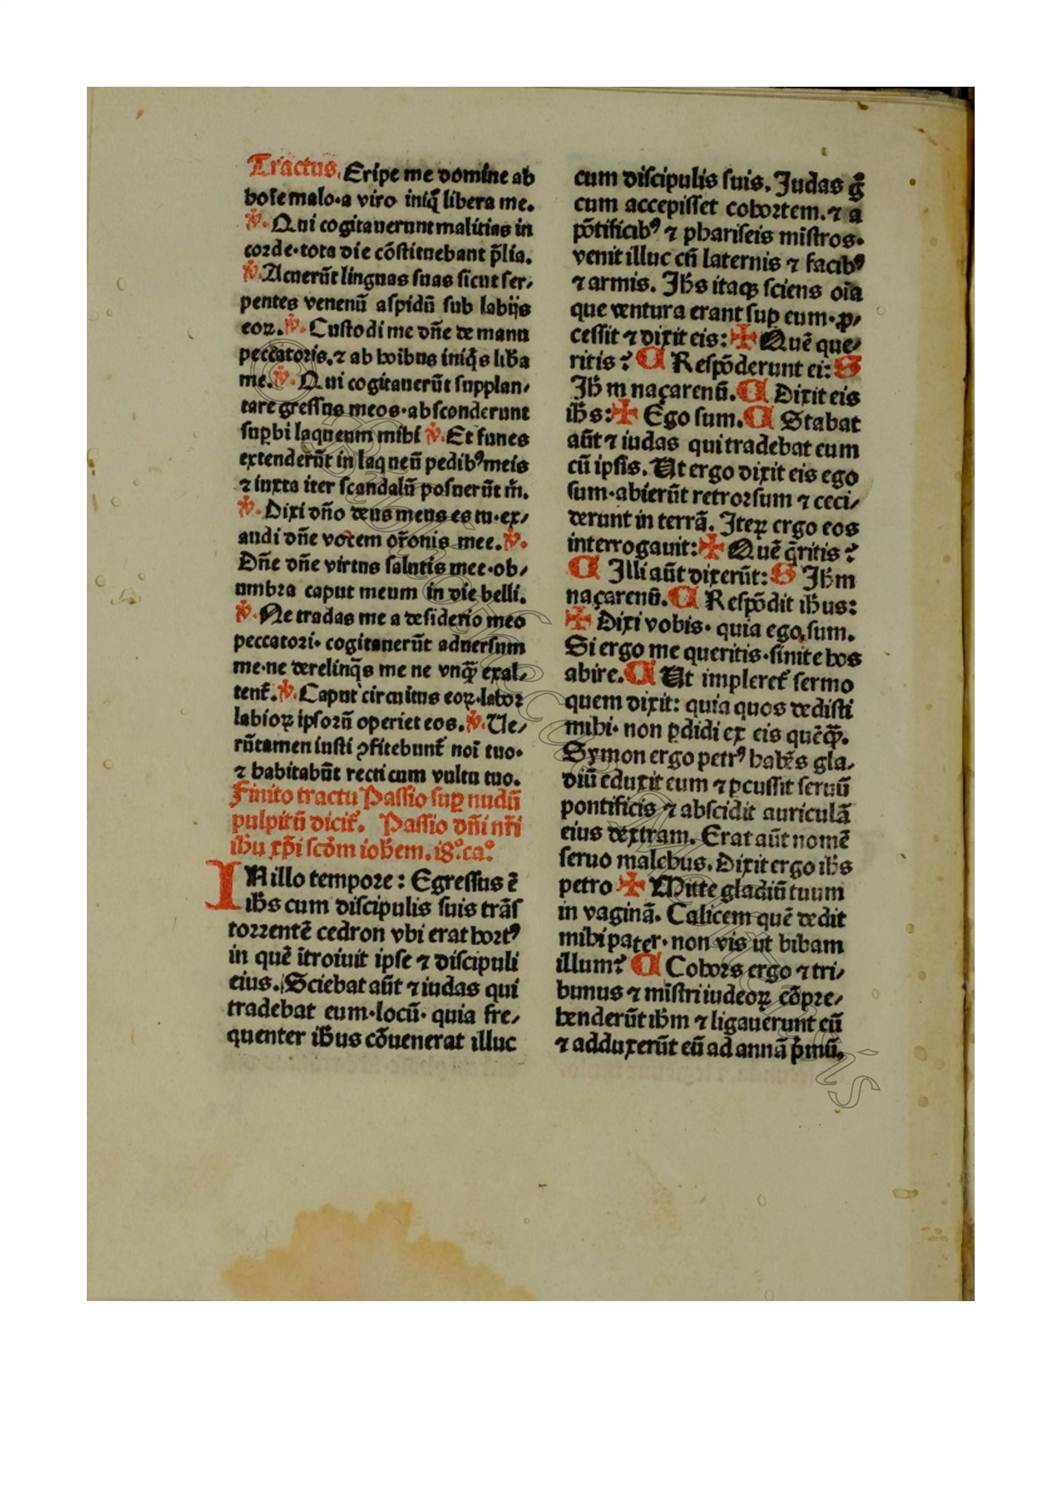 Tractus. Eripe me domine ab
hoīe malo·a viro iniq̄ libera me.
℣. Qui cogitauerunt malitias in
corde·tota die cōstituebant p̄lia.
℣. Acuerūt linguas suas sicut ser⸗
pentes venenū aspidū sub labijs
eoꝝ. ℣. Custodi me dn̄e de manu
peccatoris.⁊ ab hoībus iniq̄s liƀa
me. ℣. Qui cogitauerūt supplan⸗
tare gressus meos·absconderunt
suꝑbi laqueum mihi ℣. Et funes
extenderūt in laqueū pedibꝰ meis
⁊ iuxta iter scandalū posuerūt m̄.
℣. Dixi dn̄o deus meus es tu·ex⸗
audi dn̄e vocem or̄onis mee. ℣.
Dn̄e dn̄e virtus salutis mee·ob⸗
umbra caput meum in die belli.
℣. Ne tradas me a desiderio meo
peccatori· cogitauerūt aduersum
me·ne derelinq̄s me ne vnq̄ exal⸗
tent̄. ℣. Caput circuitus eoꝝ·labor
labioꝝ ipsorū operiet eos. ℣. Ue⸗
rūtamen iusti ꝯfitebunt̄ noī tuo·
⁊ habitabūt recti cum vultu tuo.
Finito tractu Passio suꝑ nudū
pulpitū dicit̄. Passio dn̄i nr̄i
ihū xp̄i scd̄m ioh̄em. 18.º ca.º
IN illo tempore : Egressus ē
ih̄s cum discipulis suis trās
torrentē cedron vbi erat hortꝰ
in quē ītroiuit ipse ⁊ discipuli
eius. Sciebat aūt ⁊ iudas qui
tradebat eum·locū· quia fre⸗
quenter ih̄us cōuenerat illuc
cum discipulis suis. Judas g̊
cum accepisset cohortem.⁊ a
pōtificibꝰ ⁊ phariseis mīstros·
venit illuc cū laternis ⁊ facibꝰ
⁊ armis. Jh̄s itaqꝫ sciens oīa
que ventura erant suꝑ eum·ꝓ⸗
cessit ⁊ dixit eis: ✠ Quē que⸗
ritis? C Respōderunt ei: S
Jh̄m naçarenū. C Dixit eis
ih̄s: ✠ Ego sum. C Stabat
aūt ⁊ iudas qui tradebat eum
cū ipsis. Ut ergo dixit eis ego
sum·abierūt retrorsum ⁊ ceci⸗
derunt in terrā. Iteꝝ ergo eos
interrogauit: ✠ Quē q̄ritis?
C Illi aūt dixerūt: S Jh̄m
naçarenū. C Respōdit ih̄us:
✠ Dixi vobis· quia ego sum.
Si ergo me queritis·sinite hos
abire. C Ut impleret̄ sermo
quem dixit: quia quos dedisti
mihi· non ꝑdidi ex eis quēq̄.
Symon ergo petrꝰ habēs gla⸗
diū eduxit eum ⁊ ꝑcussit seruū
pontificis ⁊ abscidit auriculā
eius dextram. Erat aūt nomē
seruo malchus. Dixit ergo ih̄s
petro ✠ Mitte gladiū tuum
in vaginā. Calicem quē dedit
mihi pater· non vis ut bibam
illum? C Cohors ergo ⁊ tri⸗
bunus ⁊ mīstri iudeoꝝ cōpre⸗
henderūt ih̄m ⁊ ligauerunt eū
⁊ adduxerūt eū ad annā p̄mū.